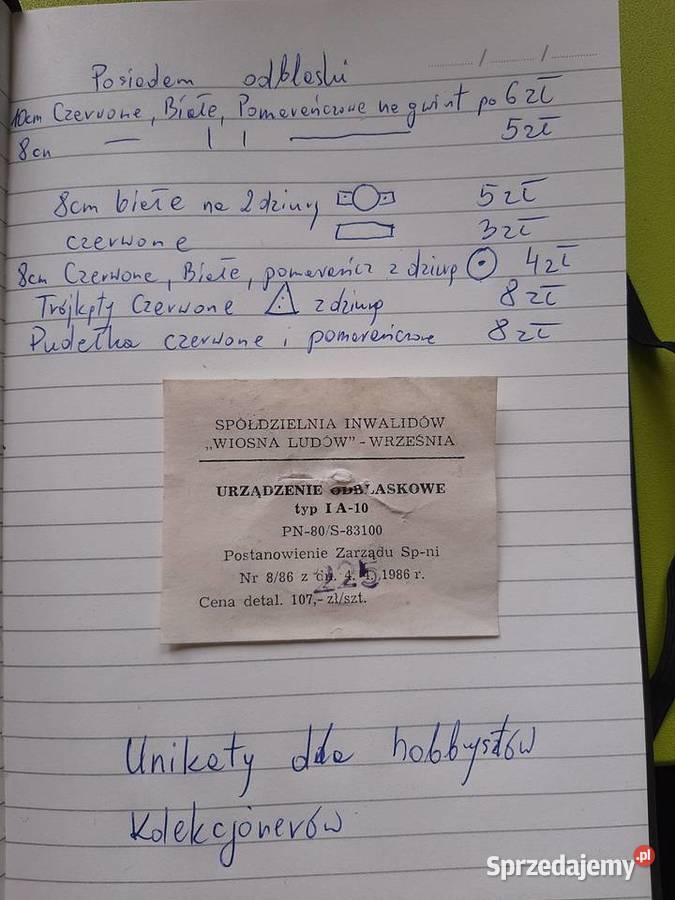 Posiadam odblaski
10cm Czerwone, Białe, Pomarańczowe na gwint po 6 zł
8cm — | | — 5 zł
8cm białe na 2 dziury 5 zł
czerwone 3 zł
8cm Czerwone, Białe, pomarańcz z dziurą 4 zł
Trójkąty Czerwone z dziurą 8 zł
Pudełka czerwone i pomarańczowe 8 zł
SPÓŁDZIELNIA INWALIDÓW
„WIOSNA LUDÓW" - WRZEŚNIA
URZĄDZENIE ODBLASKOWE
typ I A-10
PN-80/S-83100
Postanowienie Zarządu Sp-ni
Nr 8/86 z dn. 4. 1986 r.
225
Cena detal. 107,- zł/szt.
Unikaty dla hobbystów
Kolekcjonerów
Sprzedajemy.pl